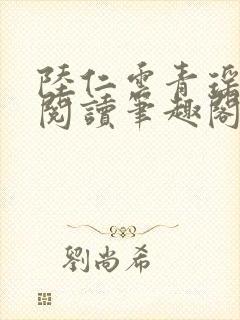 陸仁雲青瑤
閱讀筆趣閣
劉尚希